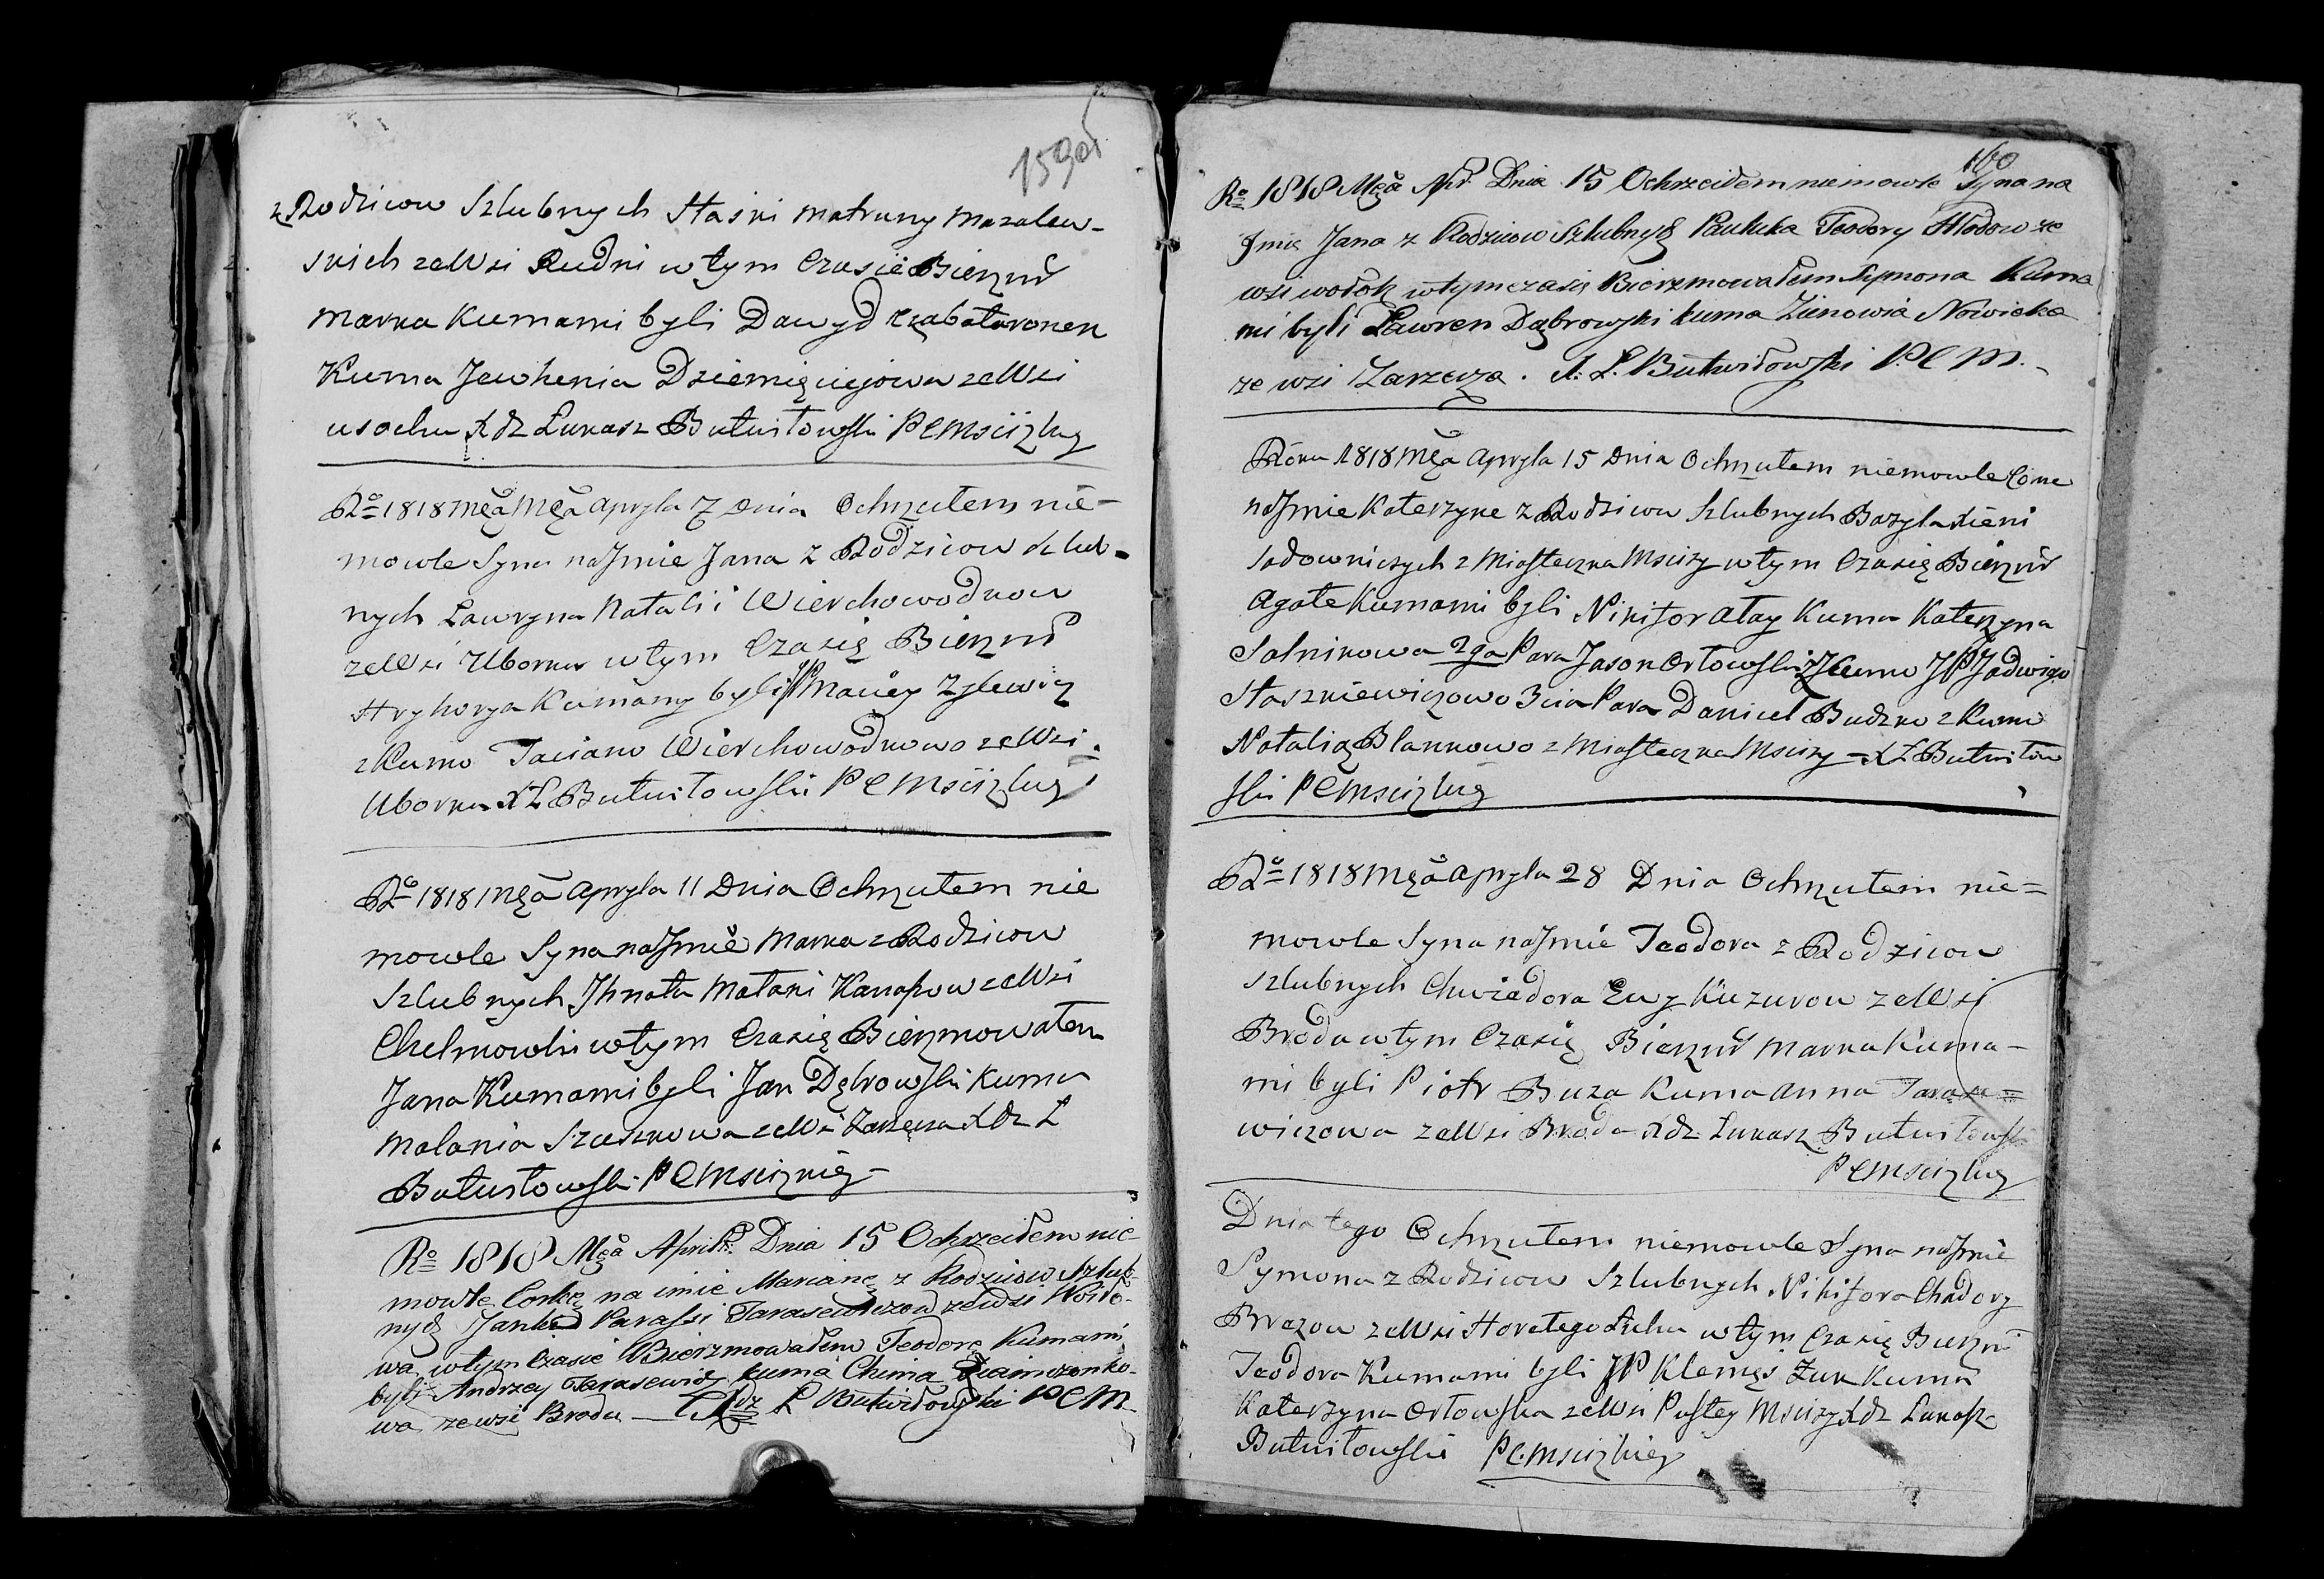 159об
z Rodzicow Szlubnych Staski Matruny Mazalew-
skich ze Wsi Rudni w tym Czasie Bierzm
Marka Kumami byli Dawyd Czabataronek
Kuma Jewhenia Dziemięciejowa ze Wsi
Usochu Xdz Łukasz Butwiłowski P C Mscizky
Ro 1818 Mca Mca Apryla 7 Dnia Ochrzciłem nie-
mowle Syna na Jmie Jana z Rodzicow Szlub-
nych Lawryna Natalii Wierchowodkow
ze Wsi Uborku w tym Czasię Bierzm
Hryhorya Kumamy byli JP Maciey Zylewicz
z Kumo Tacianо Wierchowodkowo ze Wsi
Uborku X Ł Butwiłowski P C Mscizky
Ro 1818 Mca Apryla 11 Dnia Ochrzciłem nie
mowle Syna na Jmie Marka z Rodzicow
Szlubnych Jhnata Matani Kanapow ze Wsi
Chelmowki w tym Czasię Bierzmowałem
Jana Kumami byli Jan Dębrowski Kuma
Malania Szuszkowa ze Wsi Zarzecza Xdz Ł
Butwiłowski P C Msciznig
Ro 1818 Mca Apryl. Dnia 15 Ochrzciłem nie-
mowle Corkę na imie Mariannę z Rodzicow Szlub-
nych Janka Parassi Tarasewiczow ze wsi Nosko-
wa, w tym czasie Bierzmowałem Teodorę Kumami
byli Andrzey Tarasewicz kuma Chima
wa ze wsi Brodu — Xdz Ł Butwiłowski P C M.
160
Ro 1818 Mca Apr. Dnia 15 Ochrzciłem niemowle Syna na
Jmię Jana z Rodzicow Szlubnych Pauluka Teodory Hłodow ze
wsi wołok w tym czasie Bierzmowałem Symona Kuma
mi byli Lawren Dąbrowski kuma Zienowia Nowicka
ze wsi Zarzecza. X. Ł. Butwiłowski P. C M.
Roku 1818 Mca Apryla 15 Dnia Ochrzciłem niemowle Corke
na Jmie Katerzyne z Rodzicow Szlubnych Bazyla Xieni
Sadowniczych z Miasteczka Mscizy w tym Czasię Bierzm
Agate Kumami byli Nikifor Atay Kuma Katerzyna
Salnikowa 2ga Para Jason Orłowski z Kumo JP Jadwigo
Staszkiewiczowo 3cia Para Daniel Budzko z Kumo
Natalią Blankowo z Miasteczka Mscizy — X Ł Butwiłow
ski P C Mscizky
Ro 1818 Mca Apryla 28 Dnia Ochrzciłem nie=
mowle Syna na Jmie Teodora z Rodzicow
Szlubnych Chwiedora Ewy Kuzurow ze Wsi
Brodu w tym Czasię Bierzm Marka Kuma-
mi byli Piotr Buza Kuma Anna Tarase=
wiczowa ze Wsi Broda Xdz Łukasz Butwiłowski
P C Mscizky
Dnia tego Ochrzciłem niemowle Syna na Jmie
Symona z Rodzicow Szlubnych Nikifora Chadory
Brazow ze Wsi Horełego Łuhu w tym Czasię Bierzm
Teodora Kumami byli JP Klemęs Żuk Kuma
Katerzyna Orłowska ze Wsi Pustey Mscizy Xdz Łukasz
Butwiłowski P C Mscizkiey